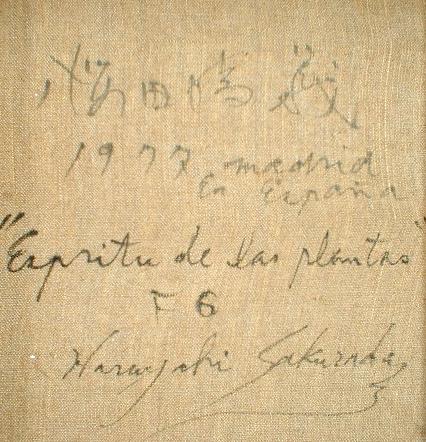 桜田晴義
1977 madrid
En España
"Espritu de las plantas"
F 6
Haruyoshi Sakurada